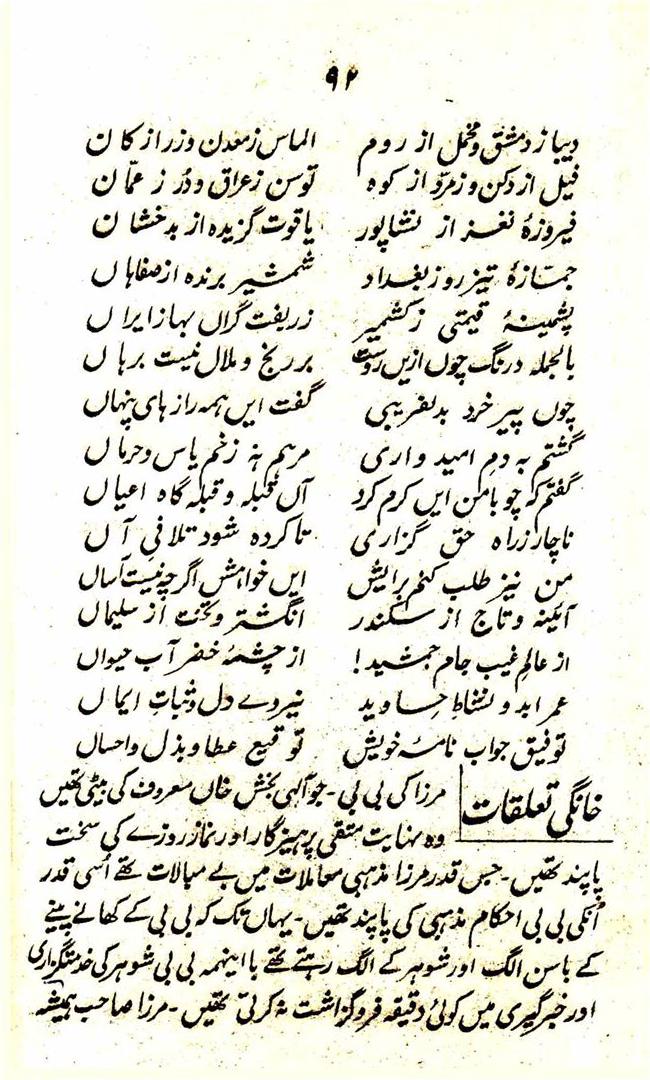 ۹۲
دیبا ز دمشق و مخمل از روم الماس ز معدن و زر از کان
فیل از دکن و زمرد از کوہ توسن ز عراق و دُر ز عمّان
فیروزۂ نغز از نشاپور یاقوت گزیدہ از بدخشان
جمّازۂ تیزرو ز بغداد شمشیر برندہ از صفاہاں
پشمینۂ قیمتی ز کشمیر زربفت گراں بہا ز ایراں
بالجملہ درنگ چوں ازیں روست بر رنج و ملال نیست برہاں
چوں پیر خرد بدلفریبی گفت ایں ہمہ رازہای پنہاں
گشتم بہ دمِ امیدواری مرہم نہ زخم یاس و حرماں
گفتم کہ چو بامن ایں کرم کرد آں قبلہ و قبلہ گاہ اعیاں
ناچار ز راہ حق گزاری تا کردہ شود تلافیِ آں
من نیز طلب کنم برایش ایں خواہش اگرچہ نیست آساں
آئینہ و تاج از سکندر انگشتر و تخت از سلیماں
از عالمِ غیب جامِ جمشید! از چشمۂ خضر آب حیواں
عمر ابد و نشاطِ جاوید نیروے دل و ثباتِ ایماں
توفیق جواب نامۂ خویش توقیع عطا و بذل و احساں
خانگی تعلقات
مرزا کی بی بی ۔ جو الٰہی بخش خاں معروف کی بیٹی تھیں
وہ نہایت متقی پرہیزگار اور نماز روزے کی سخت
پابند تھیں ۔ جس قدر مرزا مذہبی معاملات میں بے مبالات تھے اُسی قدر
اُنکی بی بی احکام مذہبی کی پابند تھیں ۔ یہاں تک کہ بی بی کے کھانے پینے
کے باسن الگ اور شوہر کے الگ رہتے تھے بااینہمہ بی بی شوہر کی خدمتگزاری
اور خبرگیری میں کوئی دقیقہ فروگزاشت نہ کرتی تھیں ۔ مرزا صاحب ہمیشہ